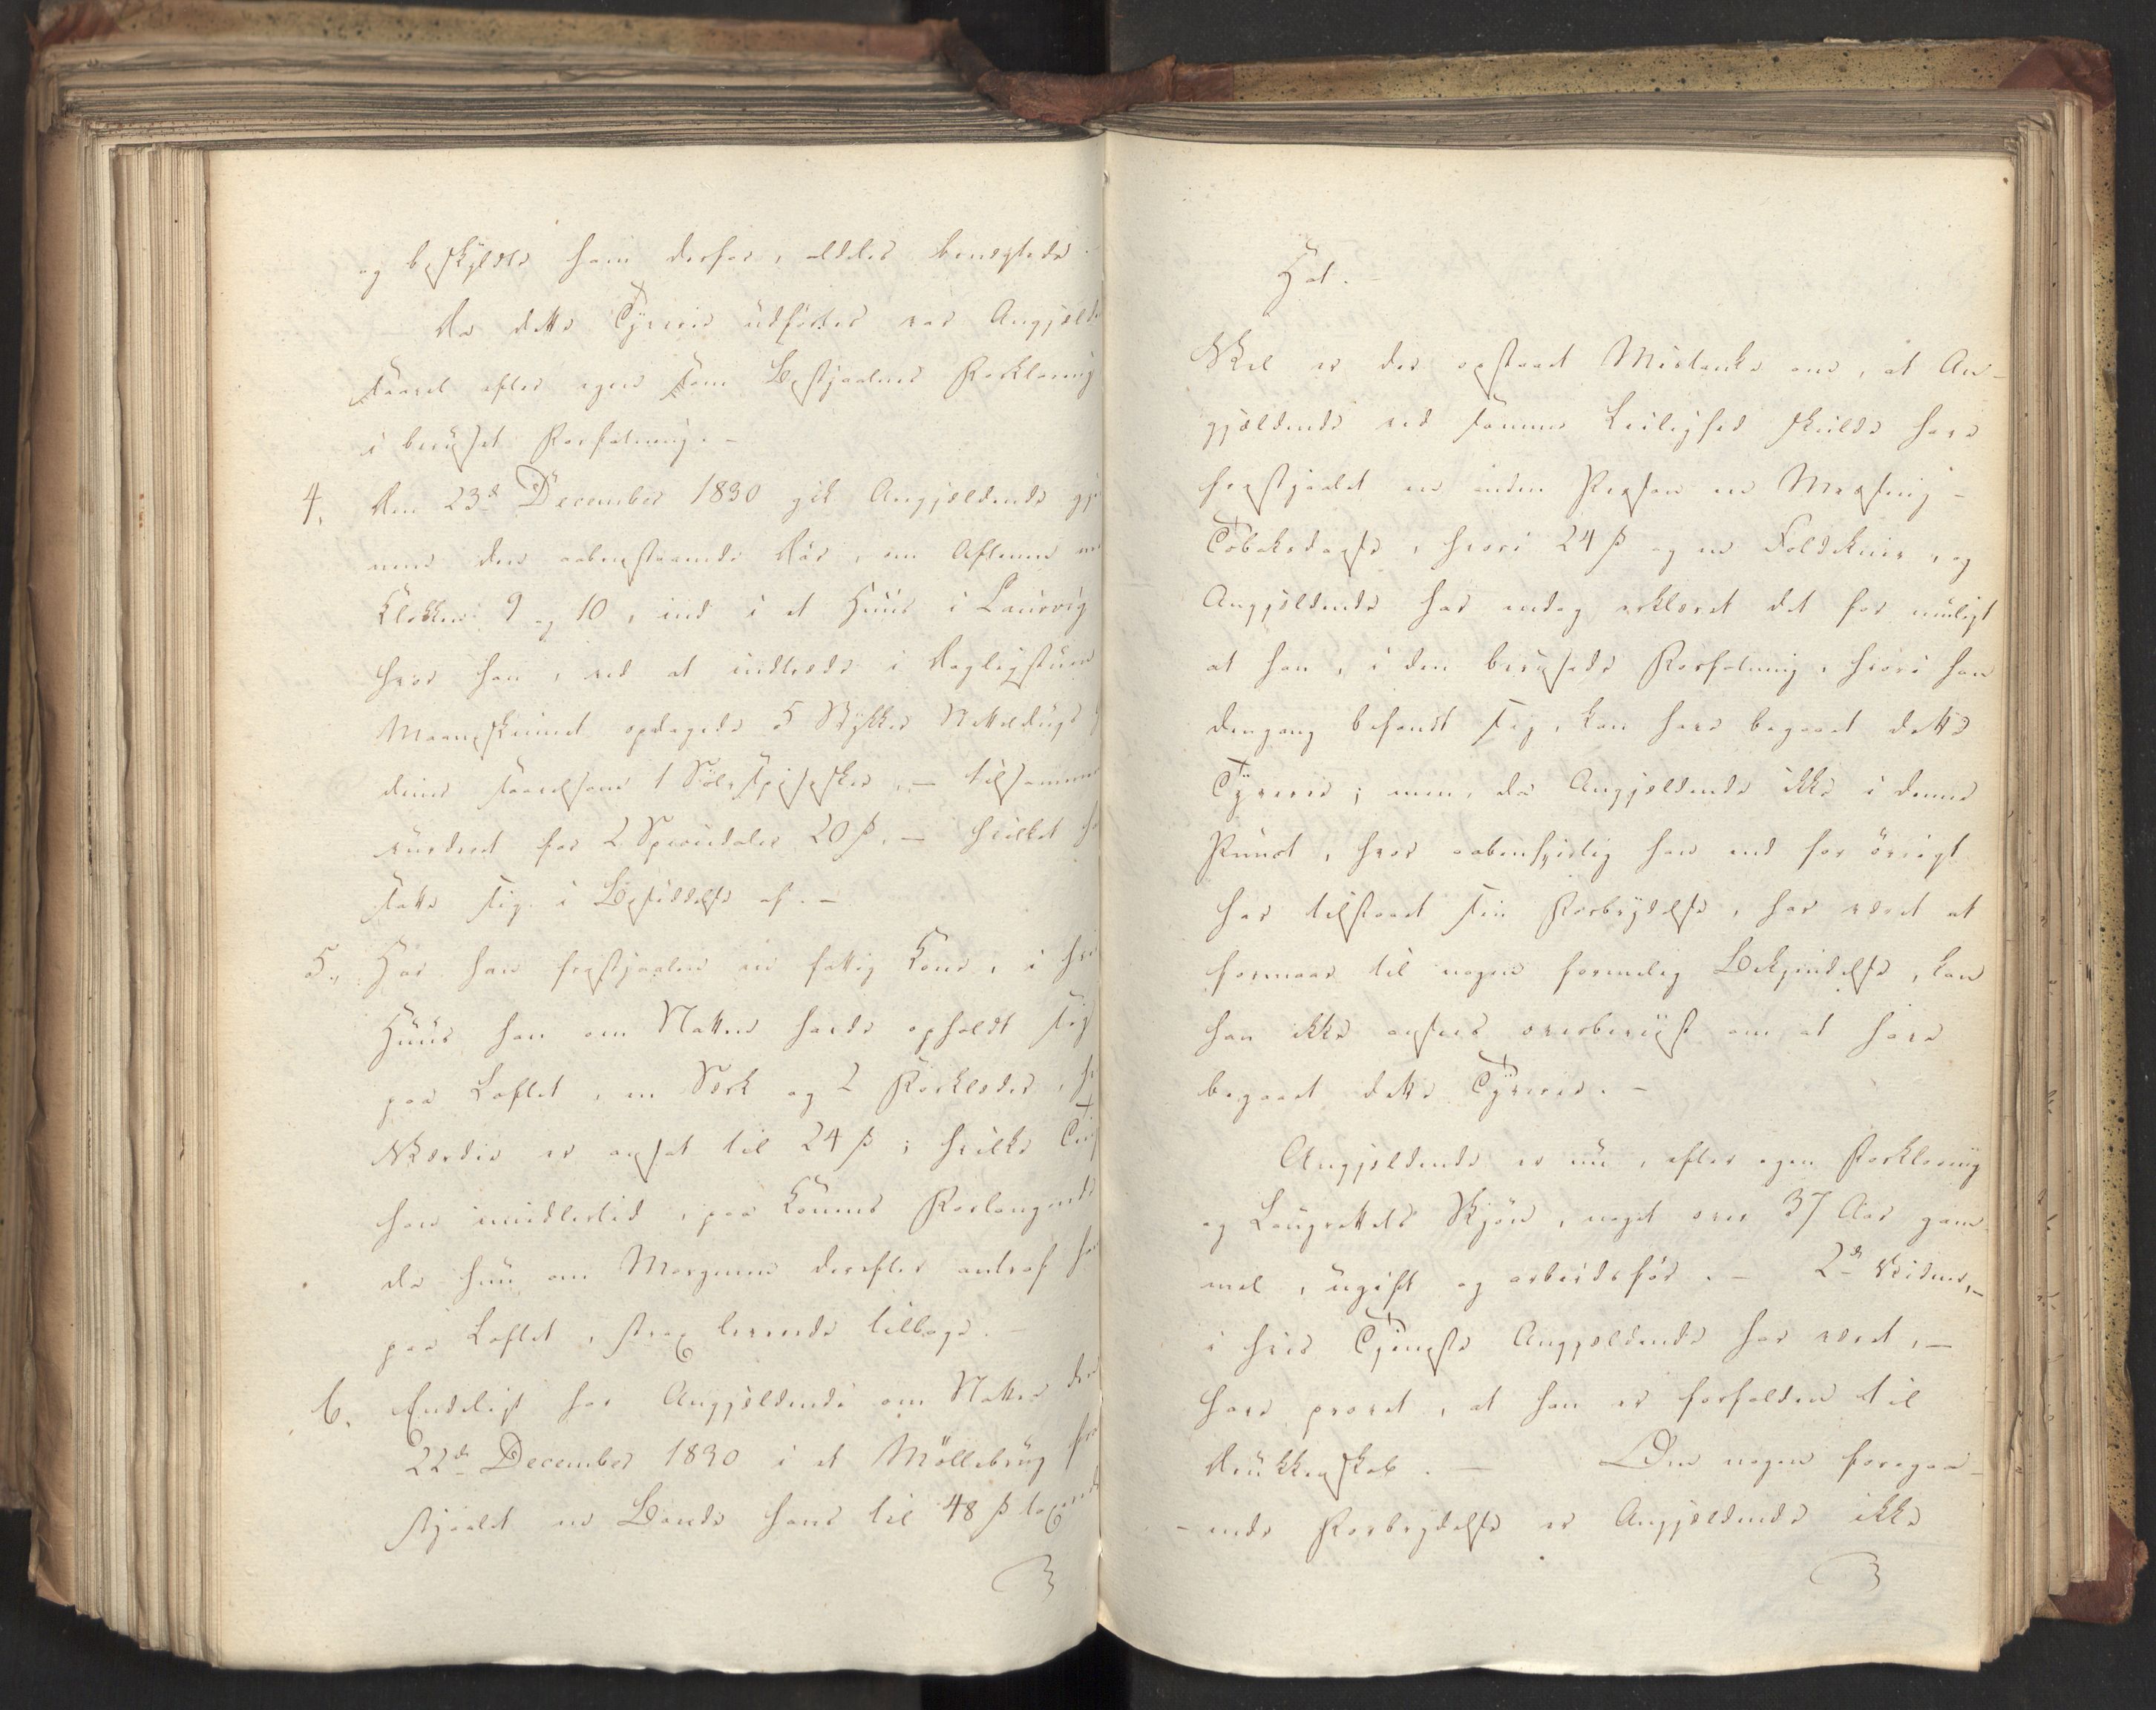 og beskyldte ham derfor, aldeles benegtede.
Da dette Tyverie udförtes var Angjeld
saavel efter egen som Bestjaalnes Forklaring
i beruset Forfatning. –
4. Den 23de December 1830 gik Angjeldende gj
nem den aabenstaaende Dör, om Aftenen m
Klokken 9 og 10, ind i et Huus i Laurvig
hvor han, ved at indtræde i Dagligstuen
Maaneskinnet opdagede 5 Stykker Netteldugs
diner saavelsom 1 Sölv Spiseskee, – tilsammen
vurderet for 2 Speciedaler 20 ß. – hvilket h
satte sig i Besiddelse af. –
5., Har han frastjaalen en fattig Kone, i hv
Huus han om Natten havde opholdt sig
paa Loftet, en Særk og 2 Forklæder, h
Værdie er ansat til 24 ß; hvilke
han imidlertid, paa Konens Forlangende
da hun om Morgenen derefter antraf ha
paa Loftet, strax leverede tilbage. –
6. Endeligt har Angjeldende om Natten den
22de December 1830 i et Möllebrug fra
stjaalet en Bonde hans til 48 ß taxerede
Hat. –
Vel er der opstaaet Mistanke om, at An-
gjeldende ved samme Leilighed skulde have
frastjaalet en anden Person en Messing-
Tobaksdaase, hvori 24 ß og en Foldekniv, og
Angjeldende har endog erklæret det for muligt
at han, i den berusede Forfatning, hvori han
dengang befandt sig, kan have begaaet dette
Tyverie; men, da Angjeldende ikke i denne
Punct, hvor aabenhjertig han end for övrigt
har tilstaaet sin Forbrydelse, har været at
formaae til nogen formelig Bekjendelse, kan
han ikke ansees overbeviist om at have
begaaet dette Tyverie. –
Angjeldende er nu, efter egen Forklaring
og Laugrettets Skjön, noget over 37 Aar gam-
mel, ugift og arbeidsför. – 2de Vidner, –
i hvis Tjeneste Angjeldende har været, –
have prövet, at han er forfalden til
Drukkenskab. – Om nogen foregaa-
-ende Forbrydelse er Angjeldende ikke